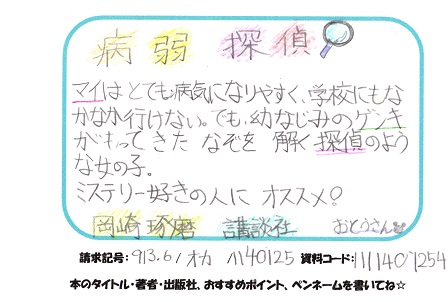 病弱探偵
マイはとても病気になりやすく、学校にもな
かなか行けない。でも、幼なじみのゲンキ
がもってきたなぞを解く探偵のよう
な女の子。
ミステリー好きの人にオススメ!
岡崎琢磨 講談社 おとうさん
請求記号:913.6/オカ/1140125 資料コード:111407254
本のタイトル・著者・出版社、おすすめポイント、ペンネームを書いてね☆